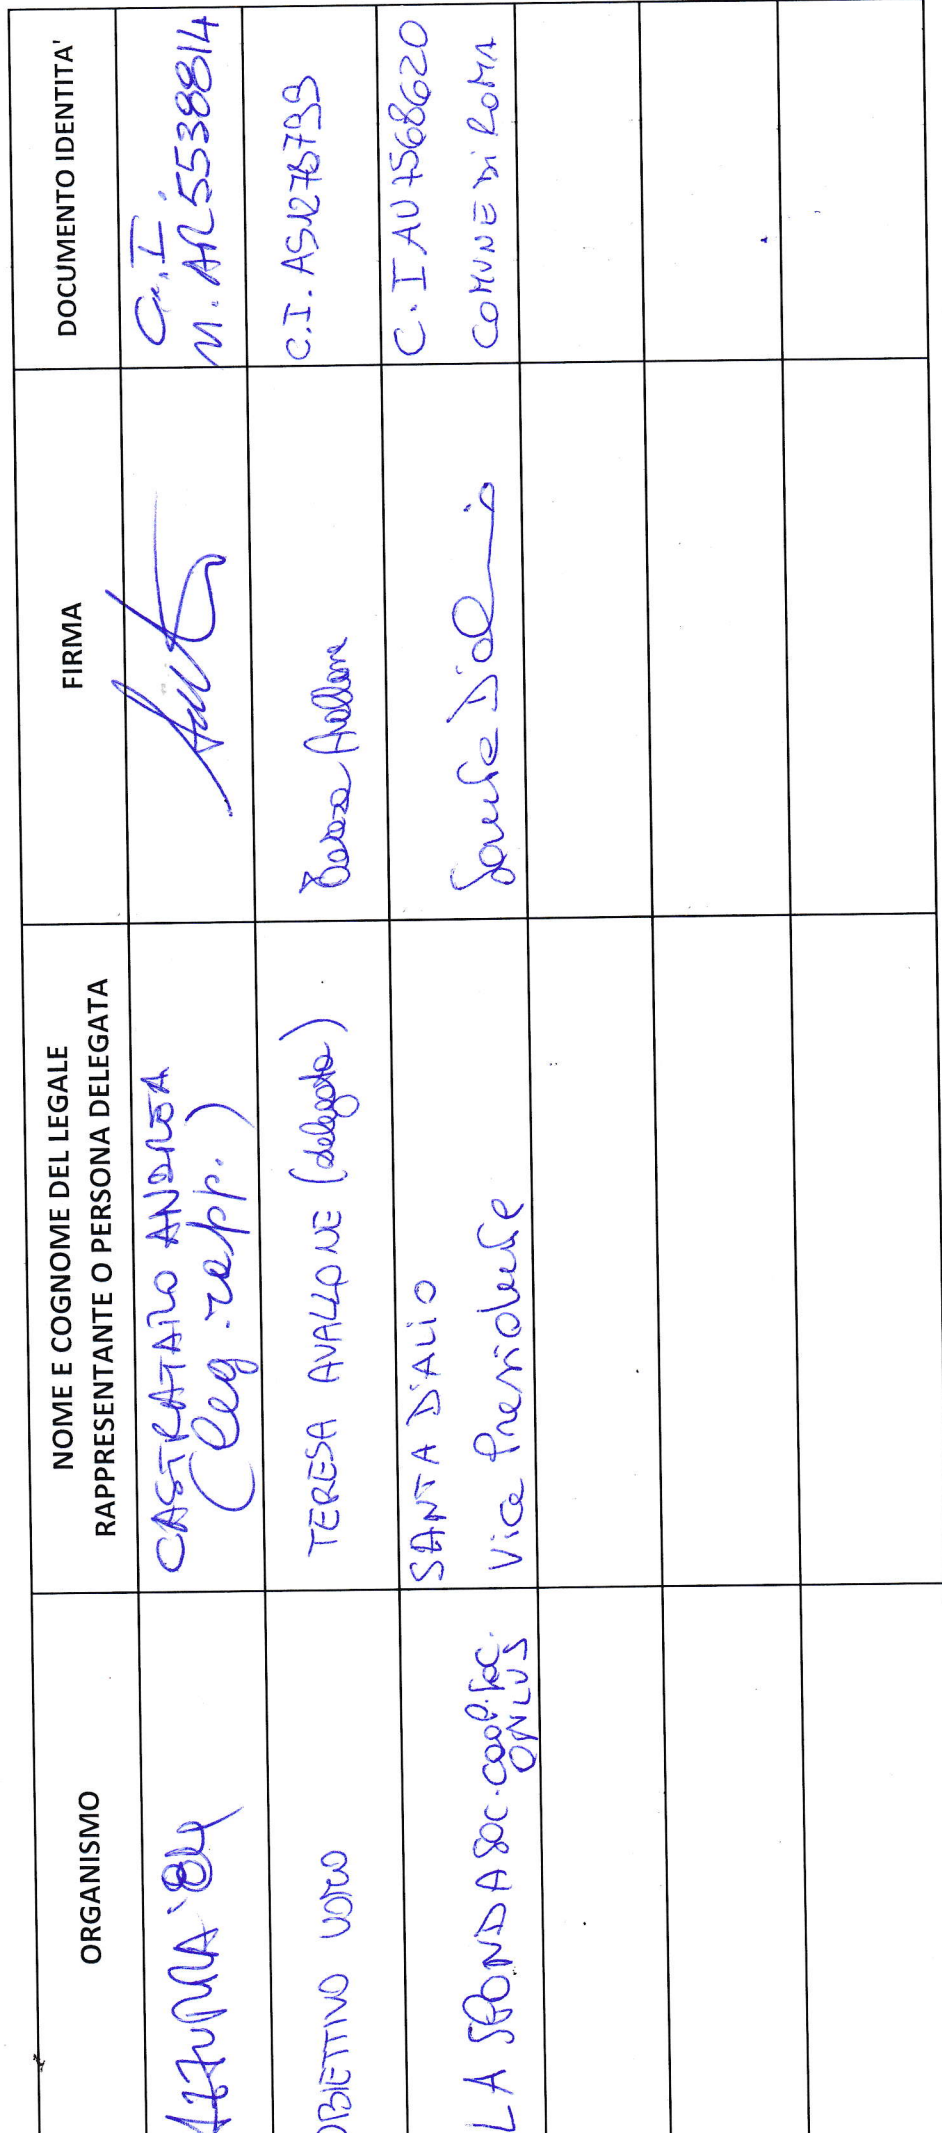 ORGANISMO
NOME E COGNOME DEL LEGALE
RAPPRESENTANTE O PERSONA DELEGATA
FIRMA
DOCUMENTO IDENTITA'
AZZURRA '84
CASTRATARO ANDREA
(leg. rapp.)
C.I.
N. AR5538814
OBIETTIVO UOMO
TERESA AVALLONE (delegata)
Teresa Avallone
C.I. AS1276799
LA SPONDA SOC. COOP. SOC.
ONLUS
SANTA D'ALIO
Vice Presidente
Santa D'Alio
C.I AU7568620
COMUNE DI ROMA